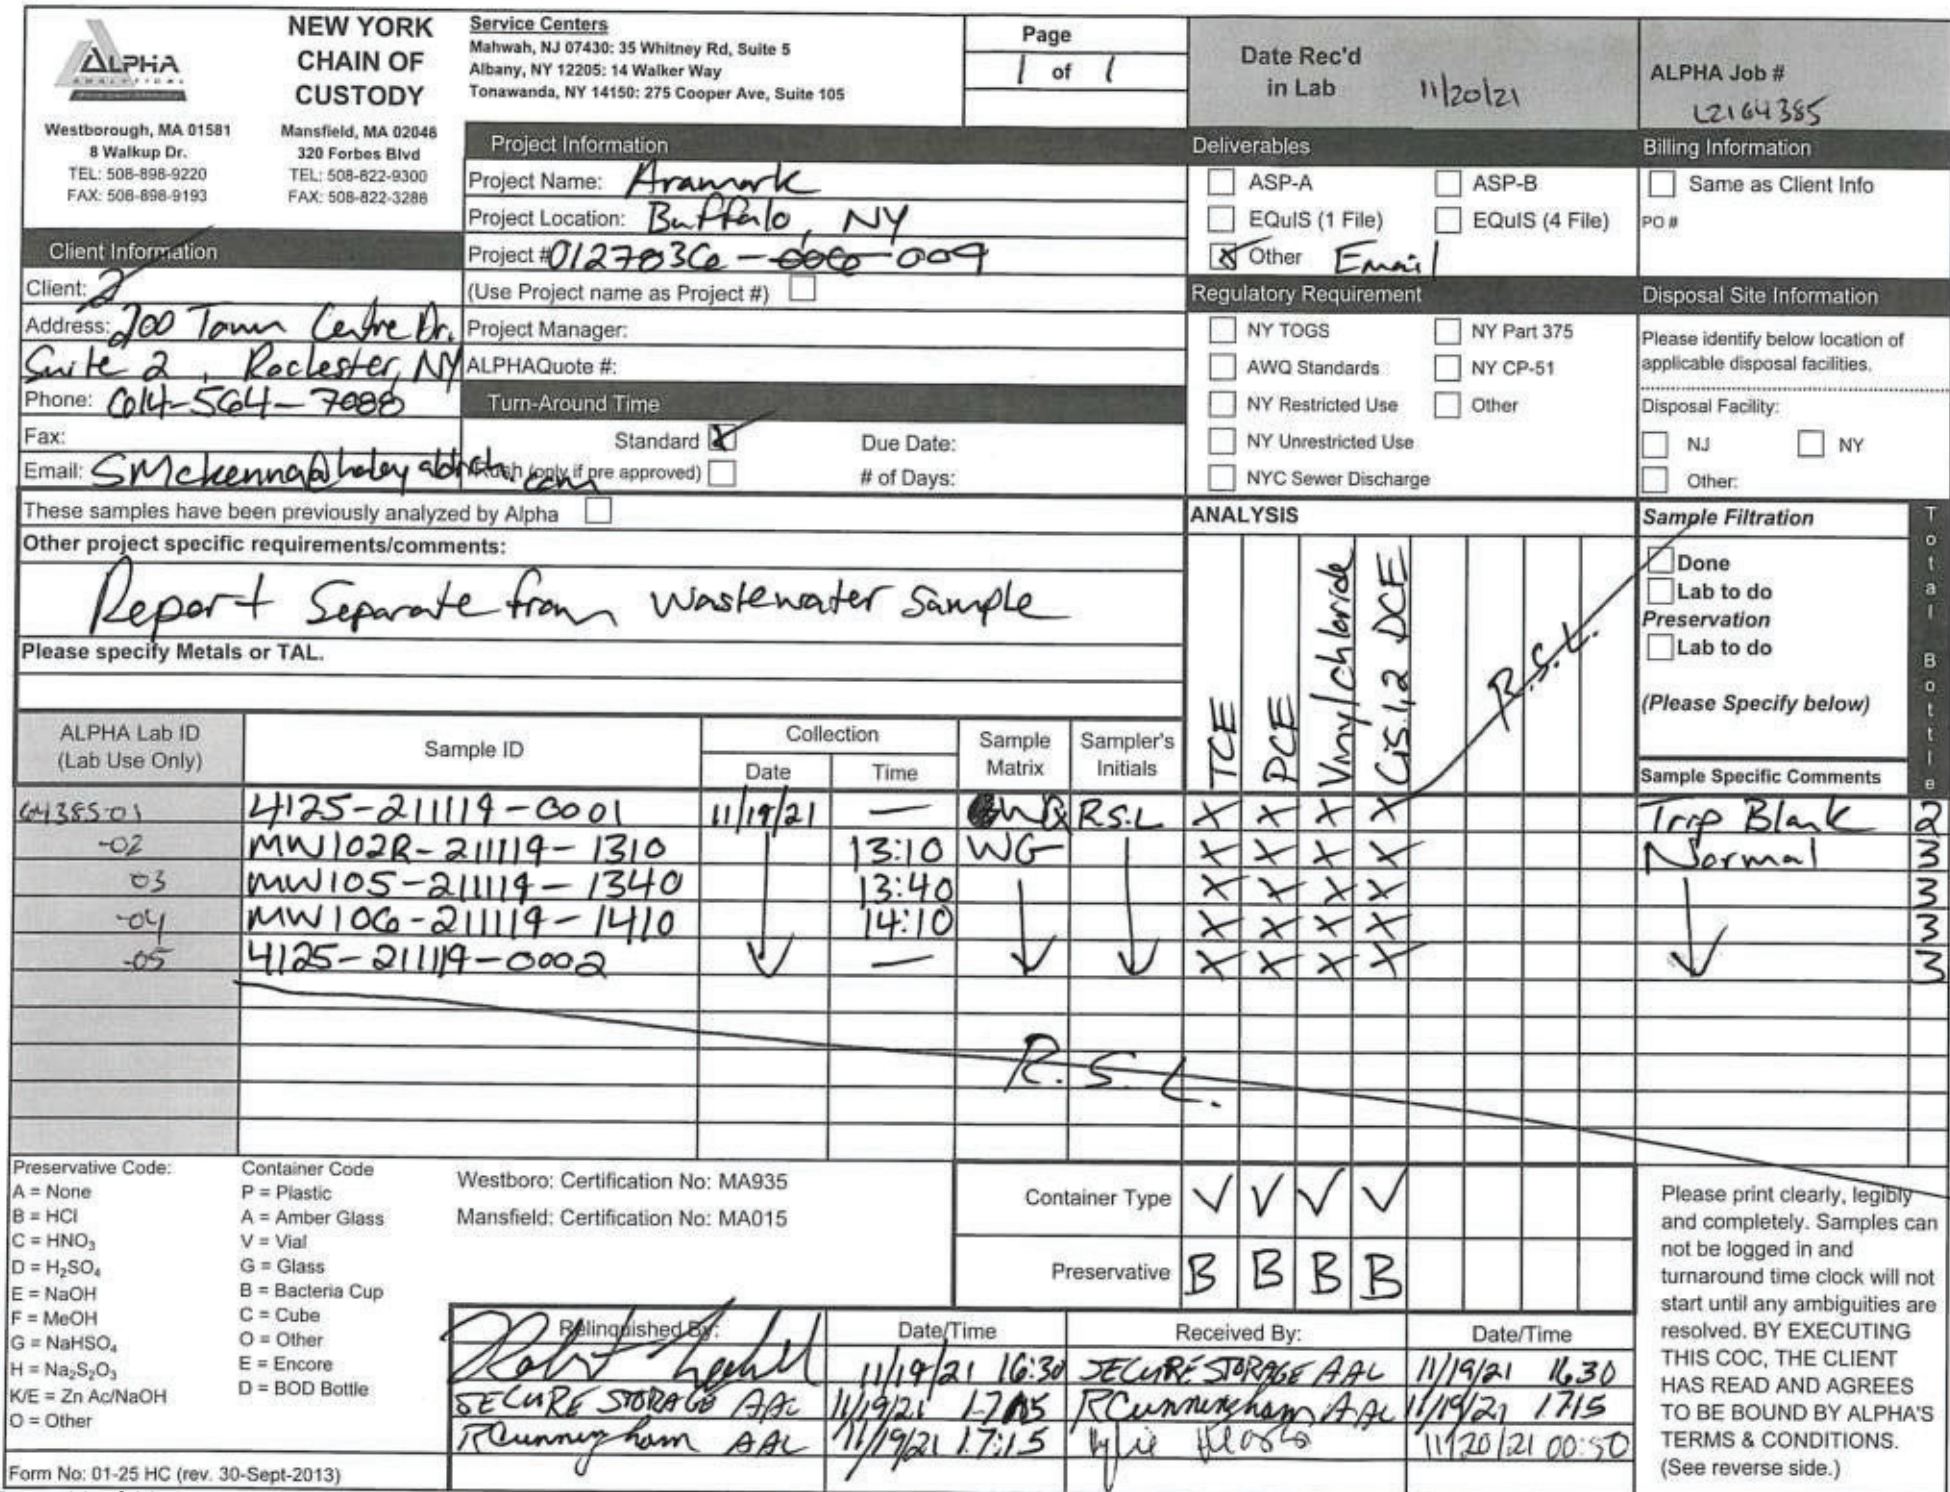 ALPHA
ANALYTICAL
NEW YORK
CHAIN OF
CUSTODY
Westborough, MA 01581
8 Walkup Dr.
TEL: 508-898-9220
FAX: 508-898-9193
Mansfield, MA 02048
320 Forbes Blvd
TEL: 508-822-9300
FAX: 508-822-3288
Service Centers
Mahwah, NJ 07430: 35 Whitney Rd, Suite 5
Albany, NY 12205: 14 Walker Way
Tonawanda, NY 14150: 275 Cooper Ave, Suite 105
Page
1 of 1
Date Rec'd
in Lab 11/20/21
ALPHA Job #
L2164385
Client Information
Client: 2
Address: 200 Town Centre Dr.
Suite 2, Rochester, NY
Phone: 614-564-7088
Fax:
Email: SMckenna@haleyaldrich.com
Project Information
Project Name: Aramark
Project Location: Buffalo, NY
Project # 0127836-006-009
(Use Project name as Project #)
Project Manager:
ALPHAQuote #:
Turn-Around Time
Standard X Due Date:
Rush (only if pre approved) # of Days:
Deliverables
ASP-A ASP-B
EQuIS (1 File) EQuIS (4 File)
X Other Email
Regulatory Requirement
NY TOGS NY Part 375
AWQ Standards NY CP-51
NY Restricted Use Other
NY Unrestricted Use
NYC Sewer Discharge
Billing Information
Same as Client Info
PO #
Disposal Site Information
Please identify below location of
applicable disposal facilities.
Disposal Facility:
NJ NY
Other:
These samples have been previously analyzed by Alpha
Other project specific requirements/comments:
Report Separate from wastewater Sample
Please specify Metals or TAL.
ANALYSIS
TCE
PCE
Vinyl chloride
Cis.1,2 DCE
R.S.L.
Sample Filtration
Done
Lab to do
Preservation
Lab to do
(Please Specify below)
Total Bottle
ALPHA Lab ID
(Lab Use Only)
Sample ID
Collection
Date Time
Sample
Matrix
Sampler's
Initials
Sample Specific Comments
64385-01 4125-211119-0001 11/19/21 — WQ R.S.L X X X X Trip Blank 2
-02 MW102R-211119-1310 13:10 WG X X X X Normal 3
03 MW105-211119-1340 13:40 X X X X 3
-04 MW106-211119-1410 14:10 X X X X 3
-05 4125-211119-0002 — X X X X 3
R.S.L.
Preservative Code:
A = None
B = HCl
C = HNO₃
D = H₂SO₄
E = NaOH
F = MeOH
G = NaHSO₄
H = Na₂S₂O₃
K/E = Zn Ac/NaOH
O = Other
Container Code
P = Plastic
A = Amber Glass
V = Vial
G = Glass
B = Bacteria Cup
C = Cube
O = Other
E = Encore
D = BOD Bottle
Westboro: Certification No: MA935
Mansfield: Certification No: MA015
Container Type V V V V
Preservative B B B B
Relinquished By: Date/Time Received By: Date/Time
11/19/21 16:30 SECURE STORAGE AAL 11/19/21 1630
SECURE STORAGE AAL 11/19/21 1715 RCunningham AAL 11/19/21 1715
RCunningham AAL 11/19/21 17:15 11/20/21 00:50
Please print clearly, legibly
and completely. Samples can
not be logged in and
turnaround time clock will not
start until any ambiguities are
resolved. BY EXECUTING
THIS COC, THE CLIENT
HAS READ AND AGREES
TO BE BOUND BY ALPHA'S
TERMS & CONDITIONS.
(See reverse side.)
Form No: 01-25 HC (rev. 30-Sept-2013)